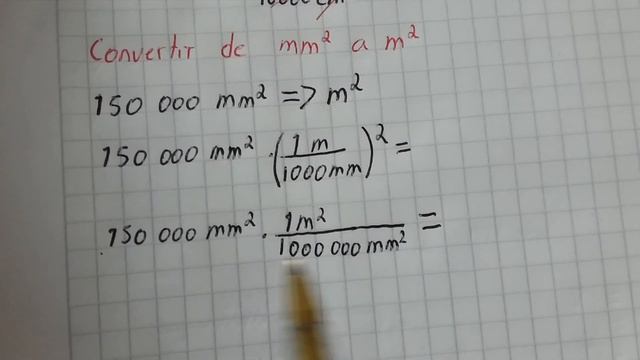 Convertir de mm² a m²
150 000 mm² => m²
150 000 mm² · (1 m / 1000 mm)² =
150 000 mm² · 1 m² / 1000 000 mm² =